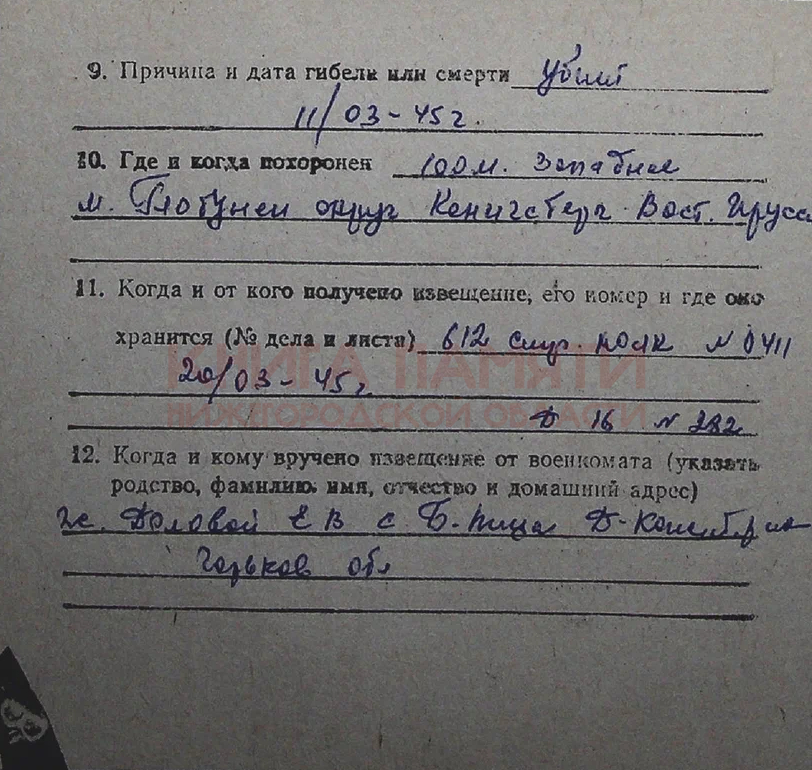 9. Причина и дата гибели или смерти Убит
11/03-45 г.
10. Где и когда похоронен 100 м. Западнее
м. округ Кенигсберг Вост. Прусс
11. Когда и от кого получено извещение, его номер и где оно
хранится (№ дела и листа) 612 стр. полк N 0411
20/03-45 г
КНИГА ПАМЯТИ
НИЖЕГОРОДСКОЙ ОБЛАСТИ
Д 16 N 282
12. Когда и кому вручено извещение от военкомата (указать
родство, фамилию, имя, отчество и домашний адрес)
ж. Е В с Б.
Горьков обл